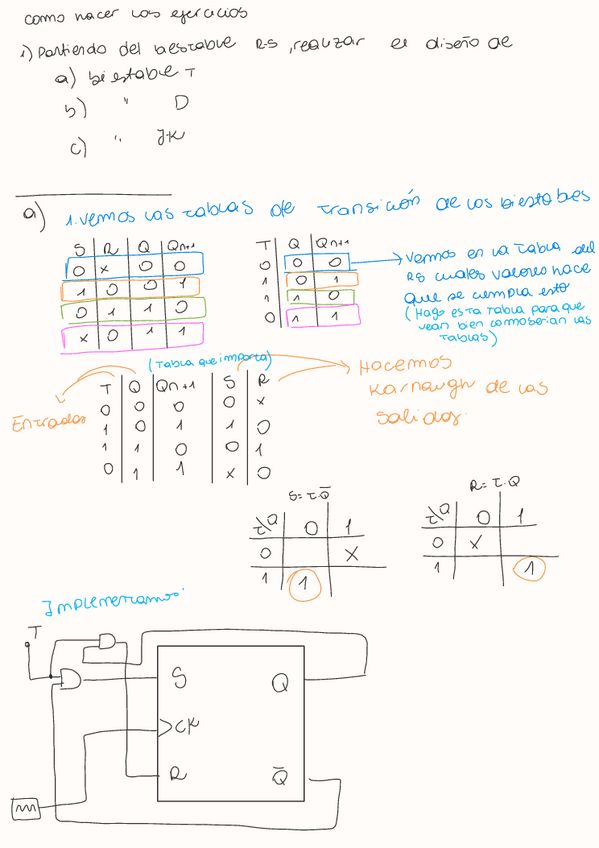 como hacer los ejercicios
1) Partiendo del biestable RS, realizar el diseño de
a) biestable T
b) " D
c) " J-K
a) 1. Vemos las tablas de transición de los biestables
S R Q Qn+1
0 x 0 0
1 0 0 1
0 1 1 0
x 0 1 1
T Q Qn+1
0 0 0
1 0 1
1 1 0
0 1 1
Vemos en la tabla del
RS cuales valores hace
que se cumpla esto
(Hago esta tabla para que
vean bien como serían las
tablas)
(Tabla que importa)
Entradas
T Q Qn+1 S R
0 0 0 0 x
1 0 1 1 0
1 1 0 0 1
0 1 1 x 0
Hacemos
Karnaugh de las
salidas.
S = T·Q̅
T\Q 0 1
0 x
1 1
R = T·Q
T\Q 0 1
0 x
1 1
Implementamos:
T
S Q
CK
R Q̅